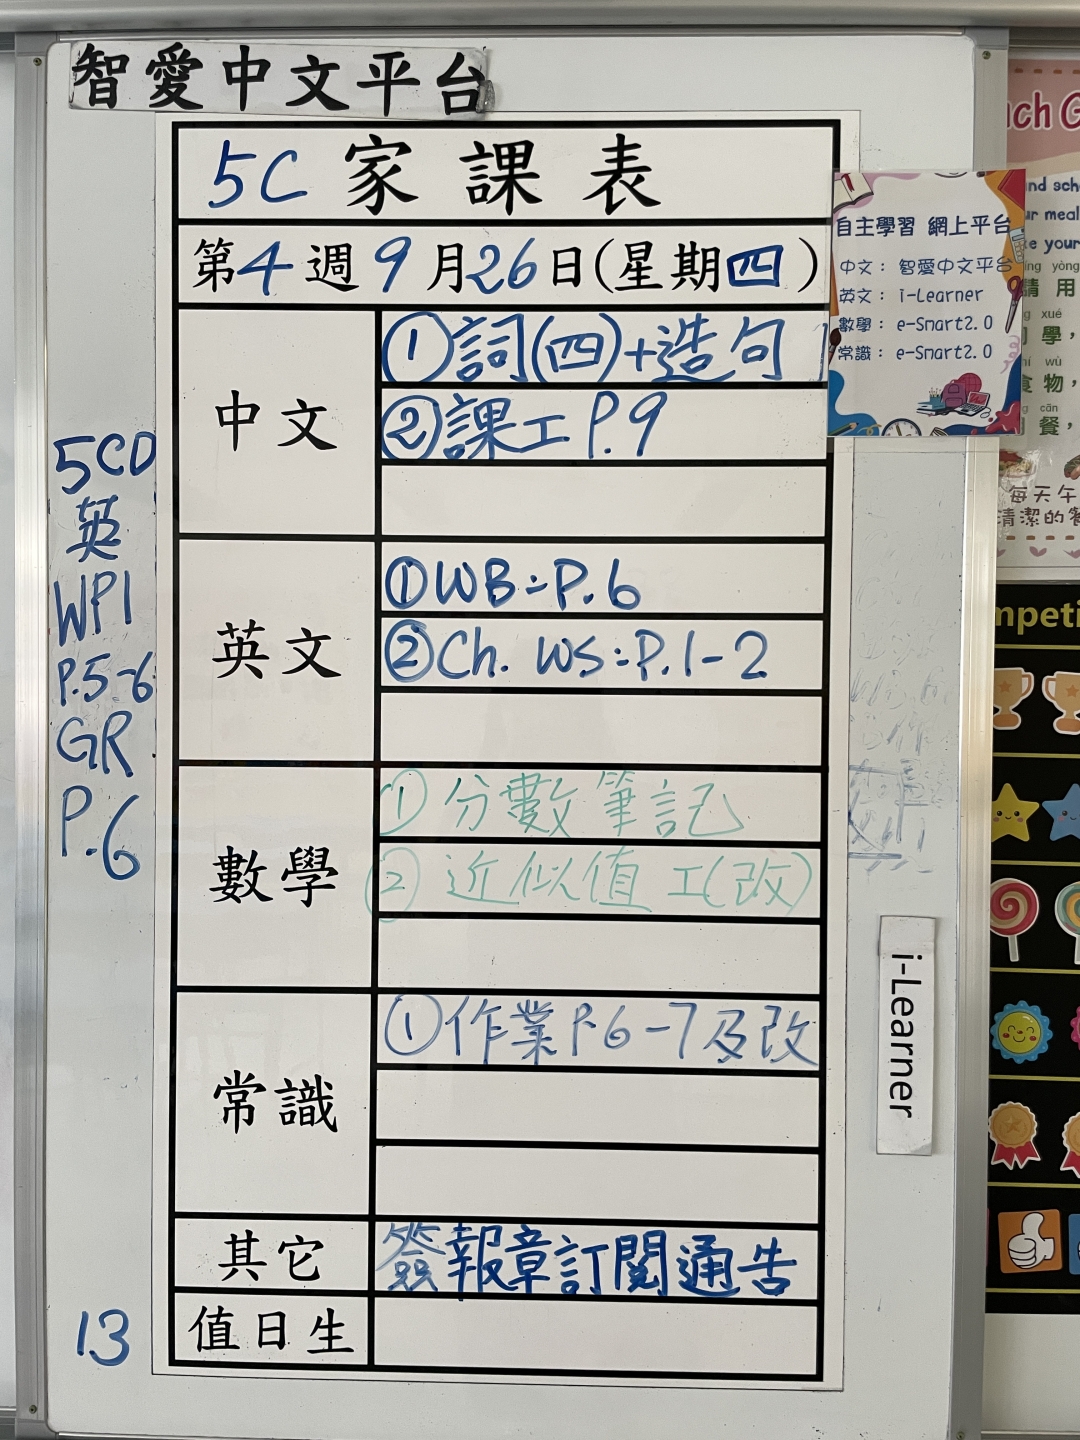 智愛中文平台
5C 家課表
第4週9月26日(星期四)
中文
①詞(四)+造句
②課工 P.9
英文
①WB:P.6
②Ch. WS:P.1-2
數學
①分數筆記
②近似值工(改)
常識
①作業P.6-7及改
其它
簽報章訂閱通告
值日生
5CD
英
WP1
P.5-6
GR
P.6
13
自主學習 網上平台
中文: 智愛中文平台
英文: i-Learner
數學: e-Smart2.0
常識: e-Smart2.0
i-Learner
yòng
請用
xué
學,
wù
食物,
cān
餐,
每天午
清潔的餐